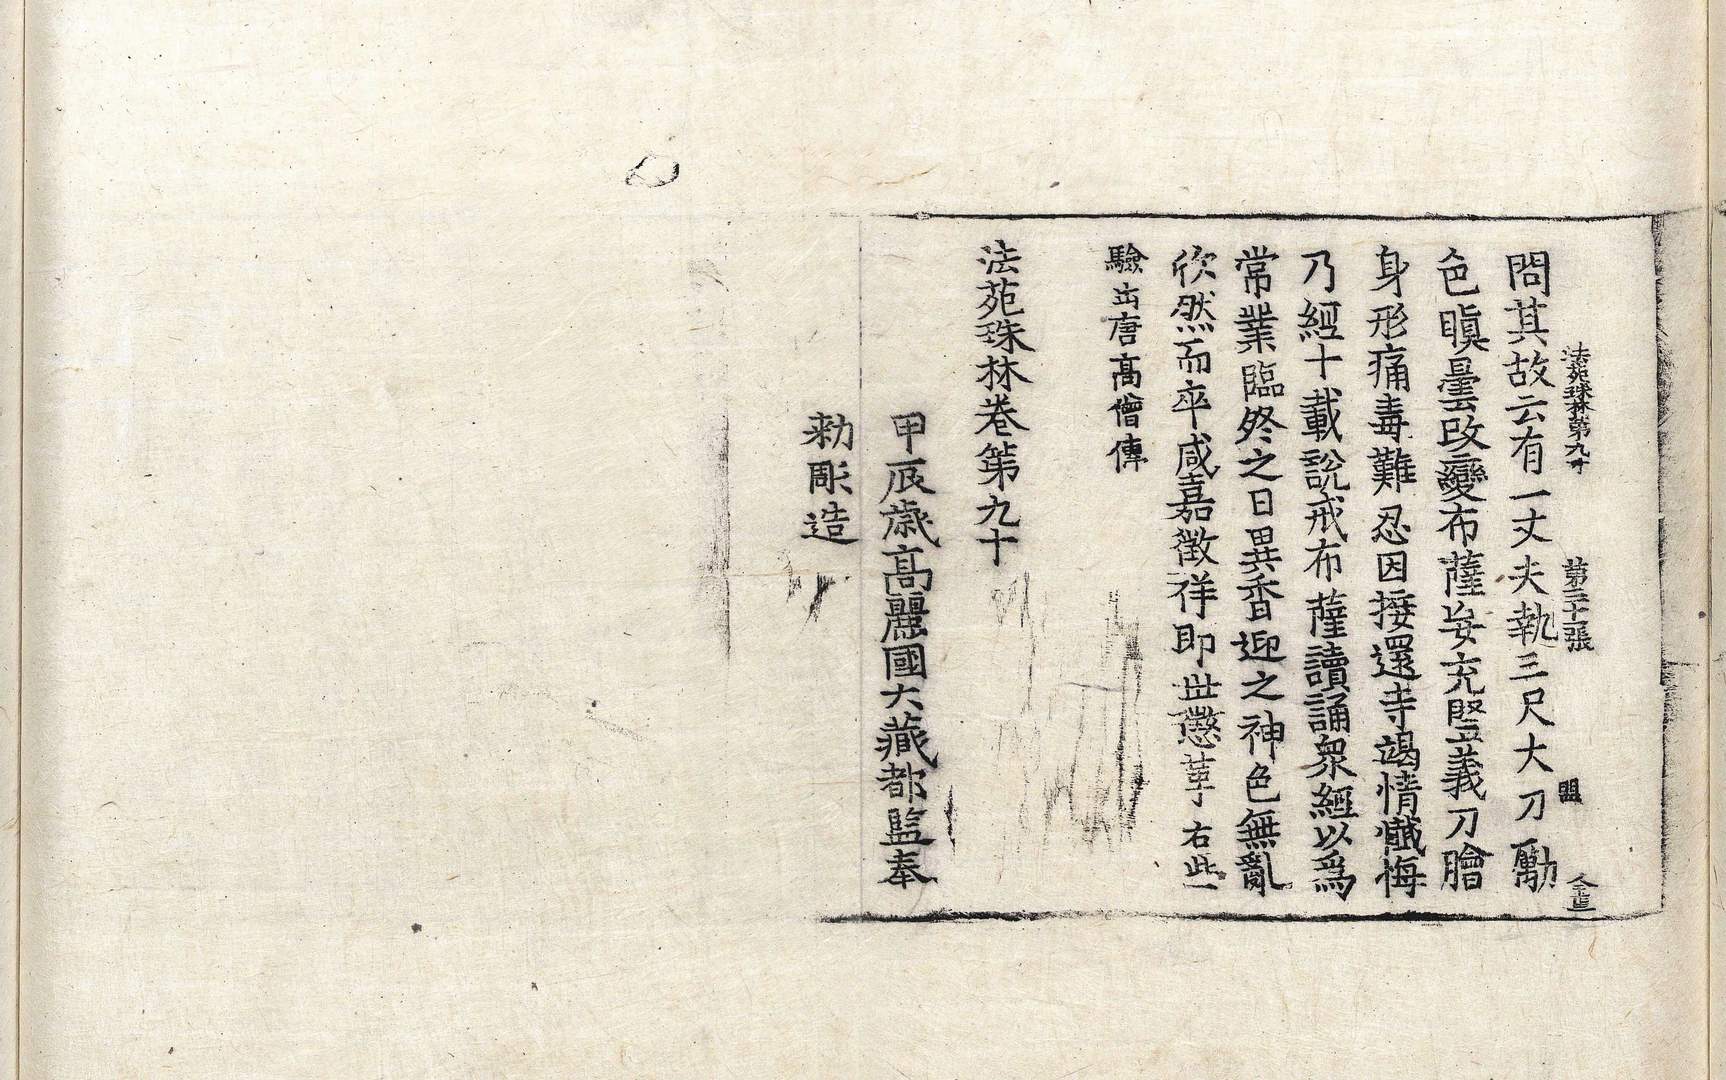 法苑珠林第九十 第三十張 盟
問其故云有一丈夫執三尺大刀勵
色瞋曇改變布薩妄充竪義刀膾
身形痛毒難忍因接還寺竭情懺悔
乃經十載說戒布薩讀誦衆經以爲
常業臨終之日異香迎之神色無亂
欣然而卒咸嘉徵祥即世懲革 右此一
驗出唐高僧傳
法苑珠林卷第九十
甲辰歲高麗國大藏都監奉
勑彫造